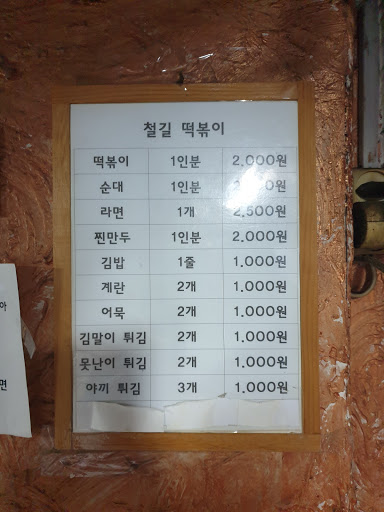 철길 떡볶이
떡볶이 1인분 2,000원
순대 1인분
라면 1개 2,500원
찐만두 1인분 2,000원
김밥 1줄 1,000원
계란 2개 1,000원
어묵 2개 1,000원
김말이 튀김 2개 1,000원
못난이 튀김 2개 1,000원
야끼 튀김 3개 1,000원
아
면